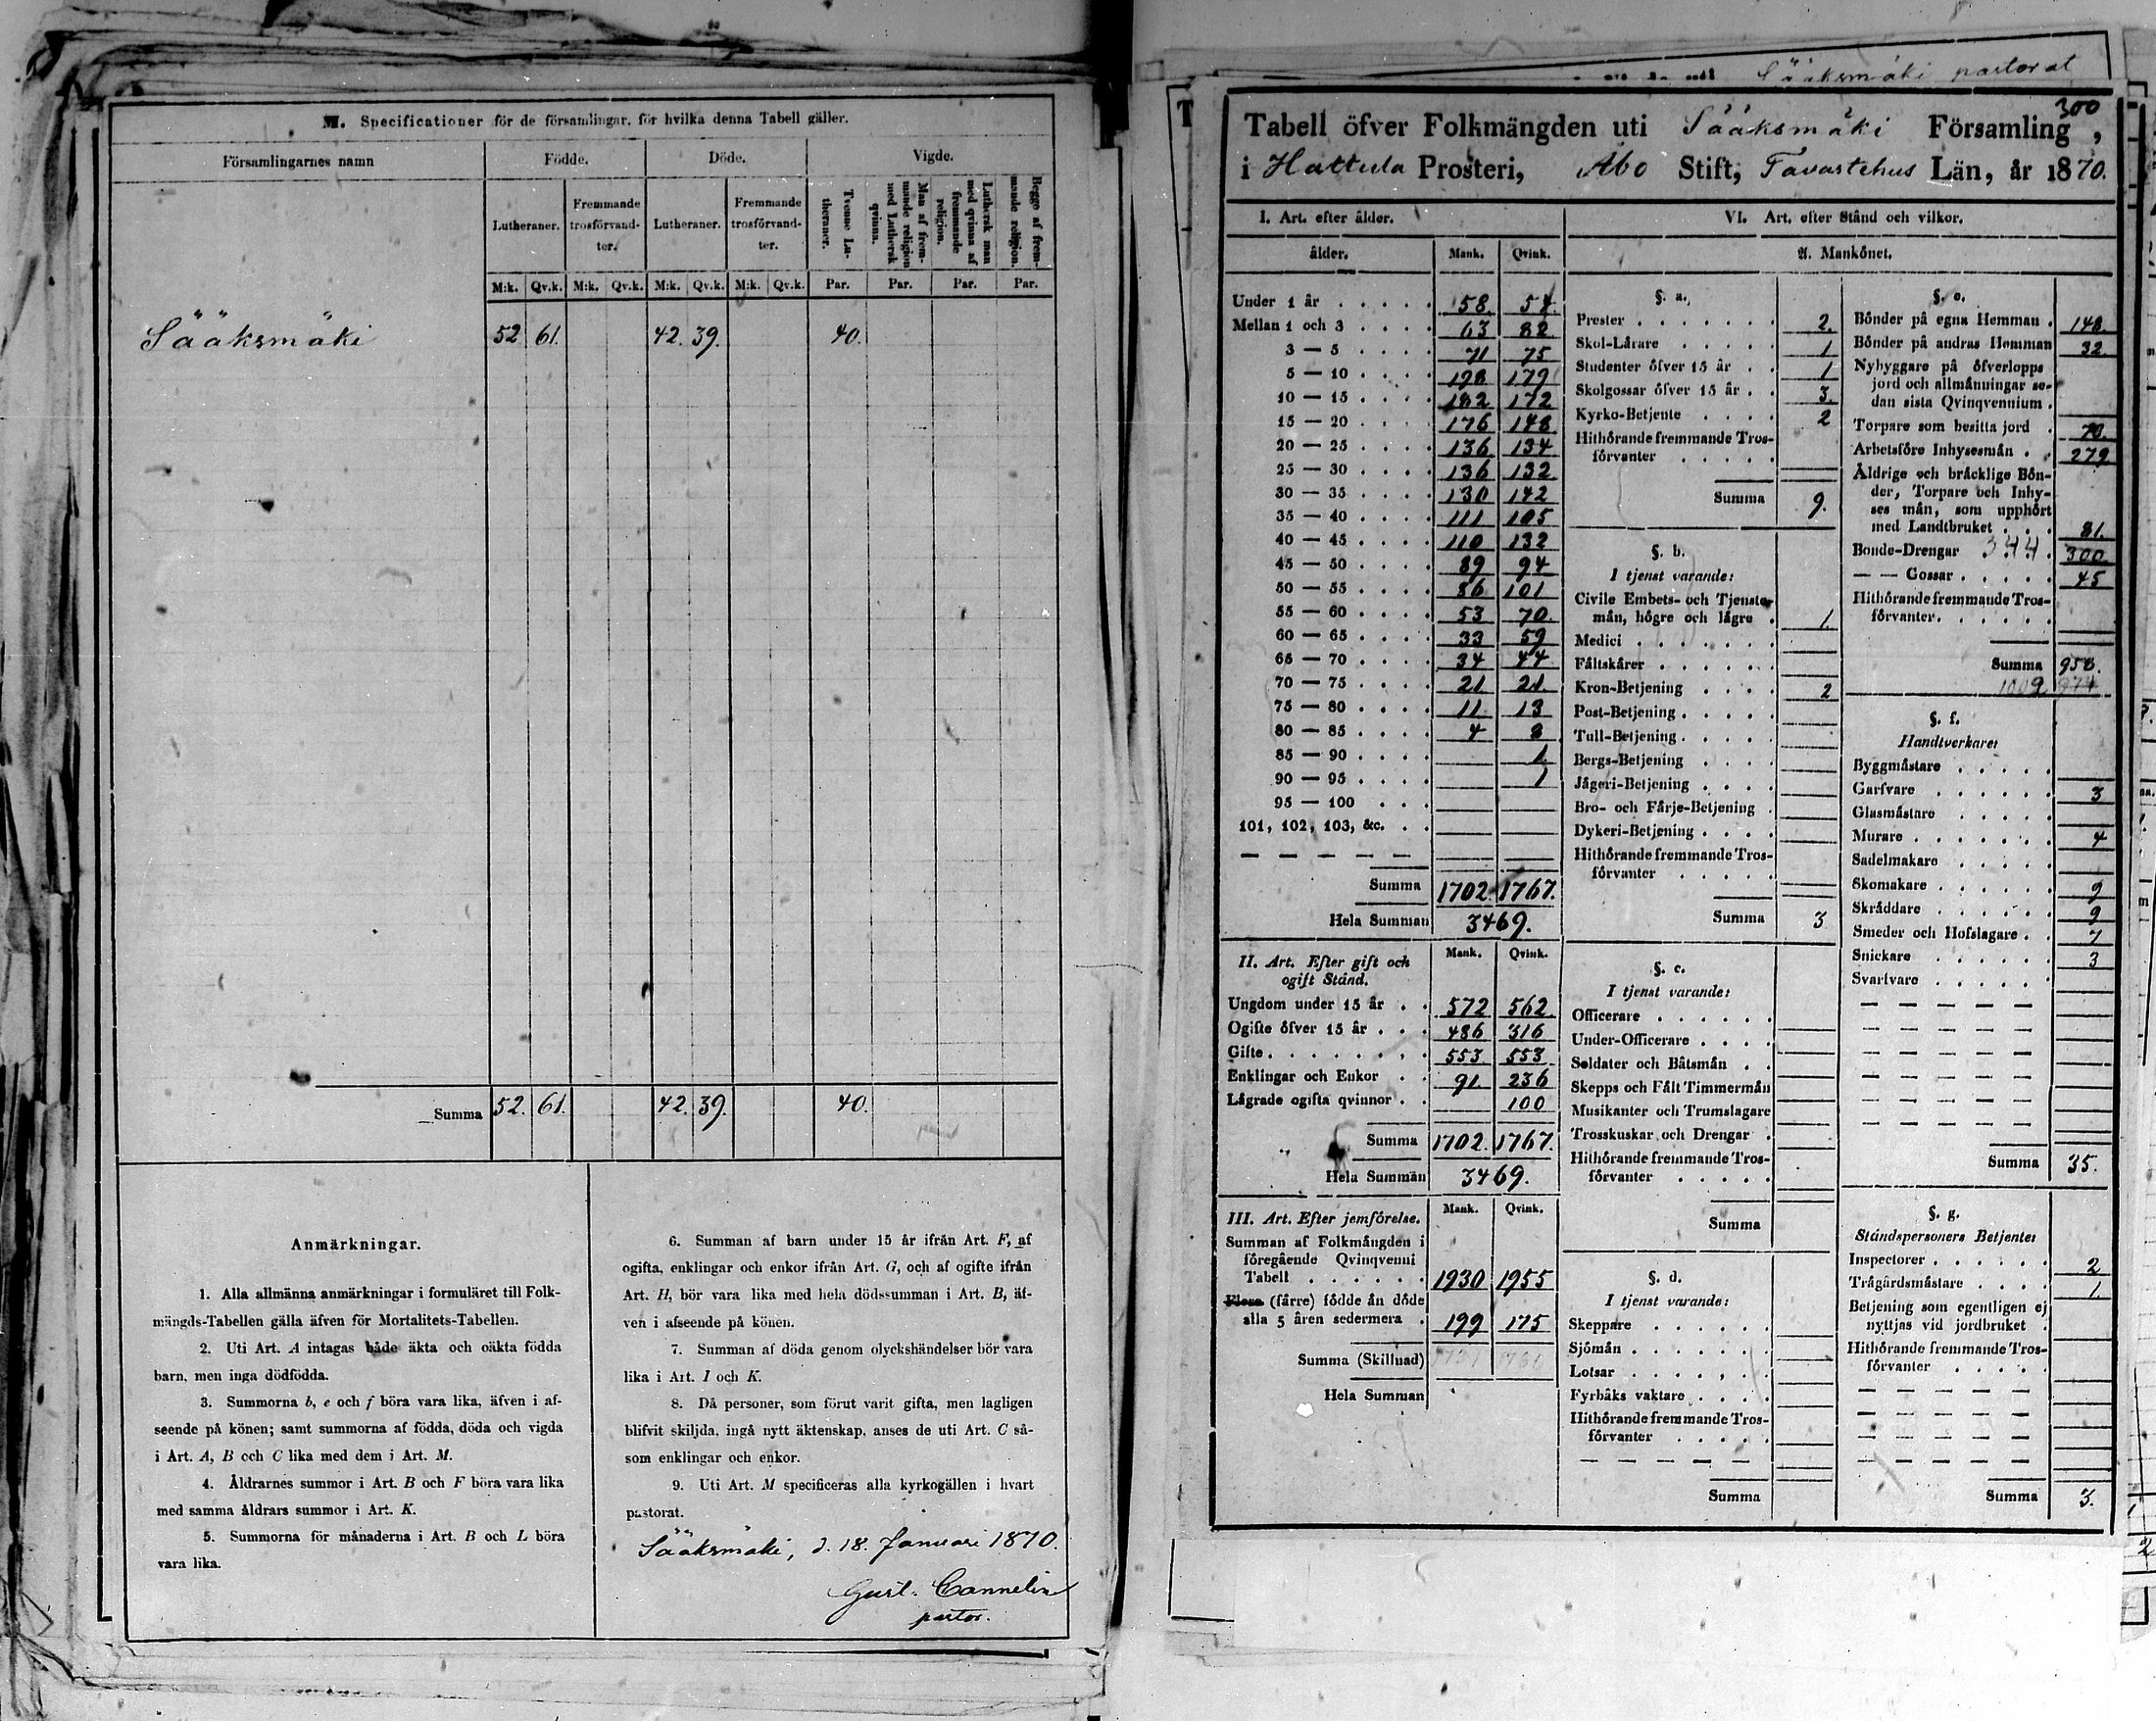 M. Specificationer för de församlingar, för hvilka denna Tabell gäller.
Församlingarnes namn Födde. Döde. Vigde.
Lutheraner. Fremmande trosförvandter. Lutheraner. Fremmande trosförvandter. Tvenne Lutheraner. Man af fremmande religion med Luthersk qvinna. Luthersk man med qvinna af fremmande religion. Begge af fremmande religion.
M:k. Qv.k. M:k. Qv.k. M:k. Qv.k. M:k. Qv.k. Par. Par. Par. Par.
Sääksmäki 52 61. 42. 39. 40.
Summa 52. 61. 42. 39. 40.
Anmärkningar.
1. Alla allmänna anmärkningar i formuläret till Folk-
mängds-Tabellen gälla äfven för Mortalitets-Tabellen.
2. Uti Art. A intagas både äkta och oäkta födda
barn, men inga dödfödda.
3. Summorna b, e och f böra vara lika, äfven i af-
seende på könen; samt summorna af födda, döda och vigda
i Art. A, B och C lika med dem i Art. M.
4. Åldrarnes summor i Art. B och F böra vara lika
med samma åldrars summor i Art. K.
5. Summorna för månaderna i Art. B och L böra
vara lika.
6. Summan af barn under 15 år ifrån Art. F, af
ogifta, enklingar och enkor ifrån Art. G, och af ogifte ifrån
Art. H, bör vara lika med hela dödssumman i Art. B, äf-
ven i afseende på könen.
7. Summan af döda genom olyckshändelser bör vara
lika i Art. I och K.
8. Då personer, som förut varit gifta, men lagligen
blifvit skiljda, ingå nytt äktenskap, anses de uti Art. C så-
som enklingar och enkor.
9. Uti Art. M specificeras alla kyrkogällen i hvart
pastorat.
Sääksmäki, d. 18. Januari 1870.
Gust. Cannelin
pastor.
Sääksmäki pastorat
300
Tabell öfver Folkmängden uti Sääksmäki Församling,
i Hattula Prosteri, Abo Stift, Tavastehus Län, år 1870.
I. Art. efter ålder.
ålder. Mank. Qvink.
Under 1 år 58. 54.
Mellan 1 och 3 63 82
3 — 5 71 75
5 — 10 198 179
10 — 15 182 172
15 — 20 176 148
20 — 25 136 134
25 — 30 136 132
30 — 35 130 142
35 — 40 111 105
40 — 45 110 132
45 — 50 89 94
50 — 55 86 101
55 — 60 53 70
60 — 65 33 59
65 — 70 34 44
70 — 75 21 21
75 — 80 11 13
80 — 85 4 8
85 — 90 1
90 — 95 1
95 — 100
101, 102, 103, &c.
Summa 1702. 1767.
Hela Summan 3469.
II. Art. Efter gift och ogift Stånd. Mank. Qvink.
Ungdom under 15 år 572 562
Ogifte öfver 15 år 486 316
Gifte 553 553
Enklingar och Enkor 91 236
Lägrade ogifta qvinnor 100
Summa 1702. 1767.
Hela Summan 3469.
III. Art. Efter jemförelse. Mank. Qvink.
Summan af Folkmängden i
föregående Qvinqvenni
Tabell 1930 1955
Flera (färre) födde än döde
alla 5 åren sedermera 199 175
Summa (Skillnad)
Hela Summan
VI. Art. efter Stånd och vilkor.
A. Mankönet.
§. a.
Prester 2.
Skol-Lärare 1
Studenter öfver 15 år 1
Skolgossar öfver 15 år 3.
Kyrko-Betjente 2
Hithörande fremmande Tros-
förvanter
Summa 9.
§. b.
I tjenst varande:
Civile Embets- och Tjenste-
män, högre och lägre 1.
Medici
Fältskärer
Kron-Betjening 2
Post-Betjening
Tull-Betjening
Bergs-Betjening
Jägeri-Betjening
Bro- och Färje-Betjening
Dykeri-Betjening
Hithörande fremmande Tros-
förvanter
Summa 3
§. c.
I tjenst varande:
Officerare
Under-Officerare
Soldater och Båtsmän
Skepps och Fält Timmermän
Musikanter och Trumslagare
Trosskuskar och Drengar
Hithörande fremmande Tros-
förvanter
Summa
§. d.
I tjenst varande:
Skeppare
Sjömän
Lotsar
Fyrbåks vaktare
Hithörande fremmande Tros-
förvanter
Summa
§. e.
Bönder på egna Hemman 148.
Bönder på andras Hemman 32.
Nybyggare på öfverlopps
jord och allmänningar se-
dan sista Qvinqvennium
Torpare som besitta jord 70.
Arbetsföre Inhysesmän 279
Åldrige och bräcklige Bön-
der, Torpare och Inhy-
ses män, som upphört
med Landtbruket 81.
Bonde-Drengar 344 300
— — Gossar 45
Hithörande fremmande Tros-
förvanter
Summa 958.
1009 974
§. f.
Handtverkare:
Byggmästare
Garfvare 3
Glasmästare
Murare 4
Sadelmakare
Skomakare 9
Skräddare 9
Smeder och Hofslagare 7
Snickare 3
Svarfvare
Summa 35.
§. g.
Ståndspersoners Betjente:
Inspectorer 2
Trägårdsmästare 1.
Betjening som egentligen ej
nyttjas vid jordbruket
Hithörande fremmande Tros-
förvanter
Summa 3.